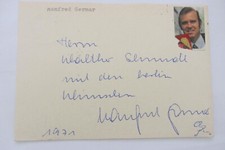 Manfred Germar
Herrn
Walther Schmidt
mit den besten
Wünschen
Manfred Germar
1971